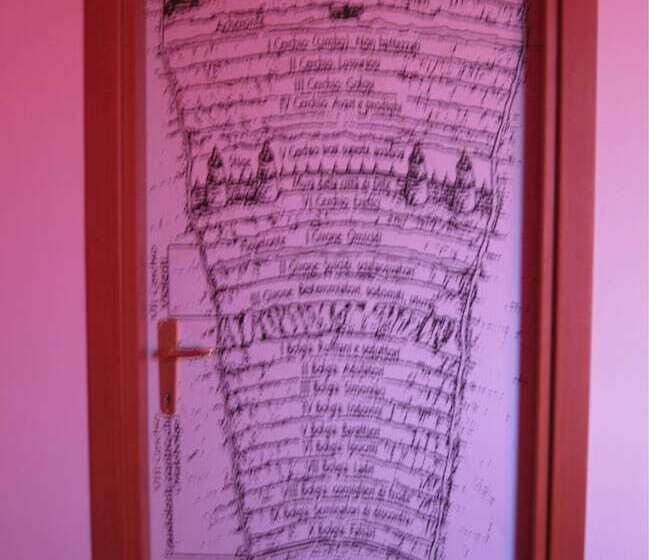 Acheronte
I Cerchio (Limbo) Non battezzati
II Cerchio Lussuriosi
III Cerchio Golosi
IV Cerchio Avari e prodighi
Stige V Cerchio
Mura della città di Dite
VI Cerchio Eretici
Flegetonte I Girone Omicidi
II Girone
III Girone Bestemmiatori sodomiti usurai
VII Cerchio
Violenti
I Bolgia Ruffiani e seduttori
II Bolgia Adulatori
III Bolgia Simoniaci
IV Bolgia Indovini
V Bolgia Barattieri
VI Bolgia Ipocriti
VII Bolgia Ladri
VIII Bolgia Consiglieri di frode
IX Bolgia Seminatori di discordia
X Bolgia Falsari
VIII Cerchio